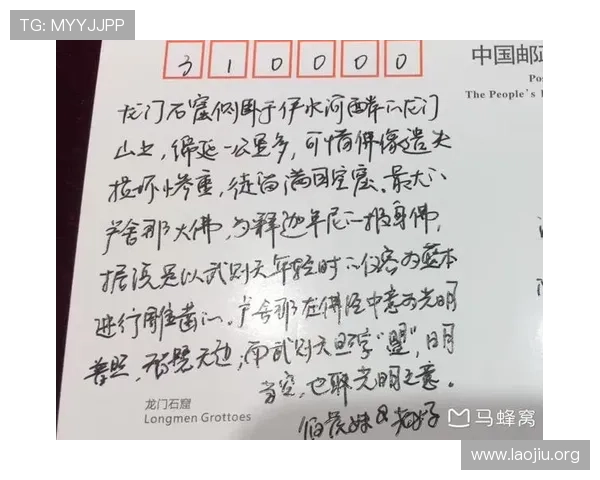 TG: MYYJJPP
3 1 0 0 0 0
中国邮政
Pos
The People's
龙门石窟位于伊水河畔的龙门
山上，绵延一公里多，可惜佛像遗失
损坏惨重，徒留满目空窟。最大的
卢舍那大佛，为释迦牟尼的报身佛，
据说是以武则天年轻时的仪容为蓝本
进行雕凿的。卢舍那在佛经中意为光明
普照，智慧无边；而武则天
当空，也取光明之意。
龙门石窟
Longmen Grottoes
马蜂窝
www.laojiu.org